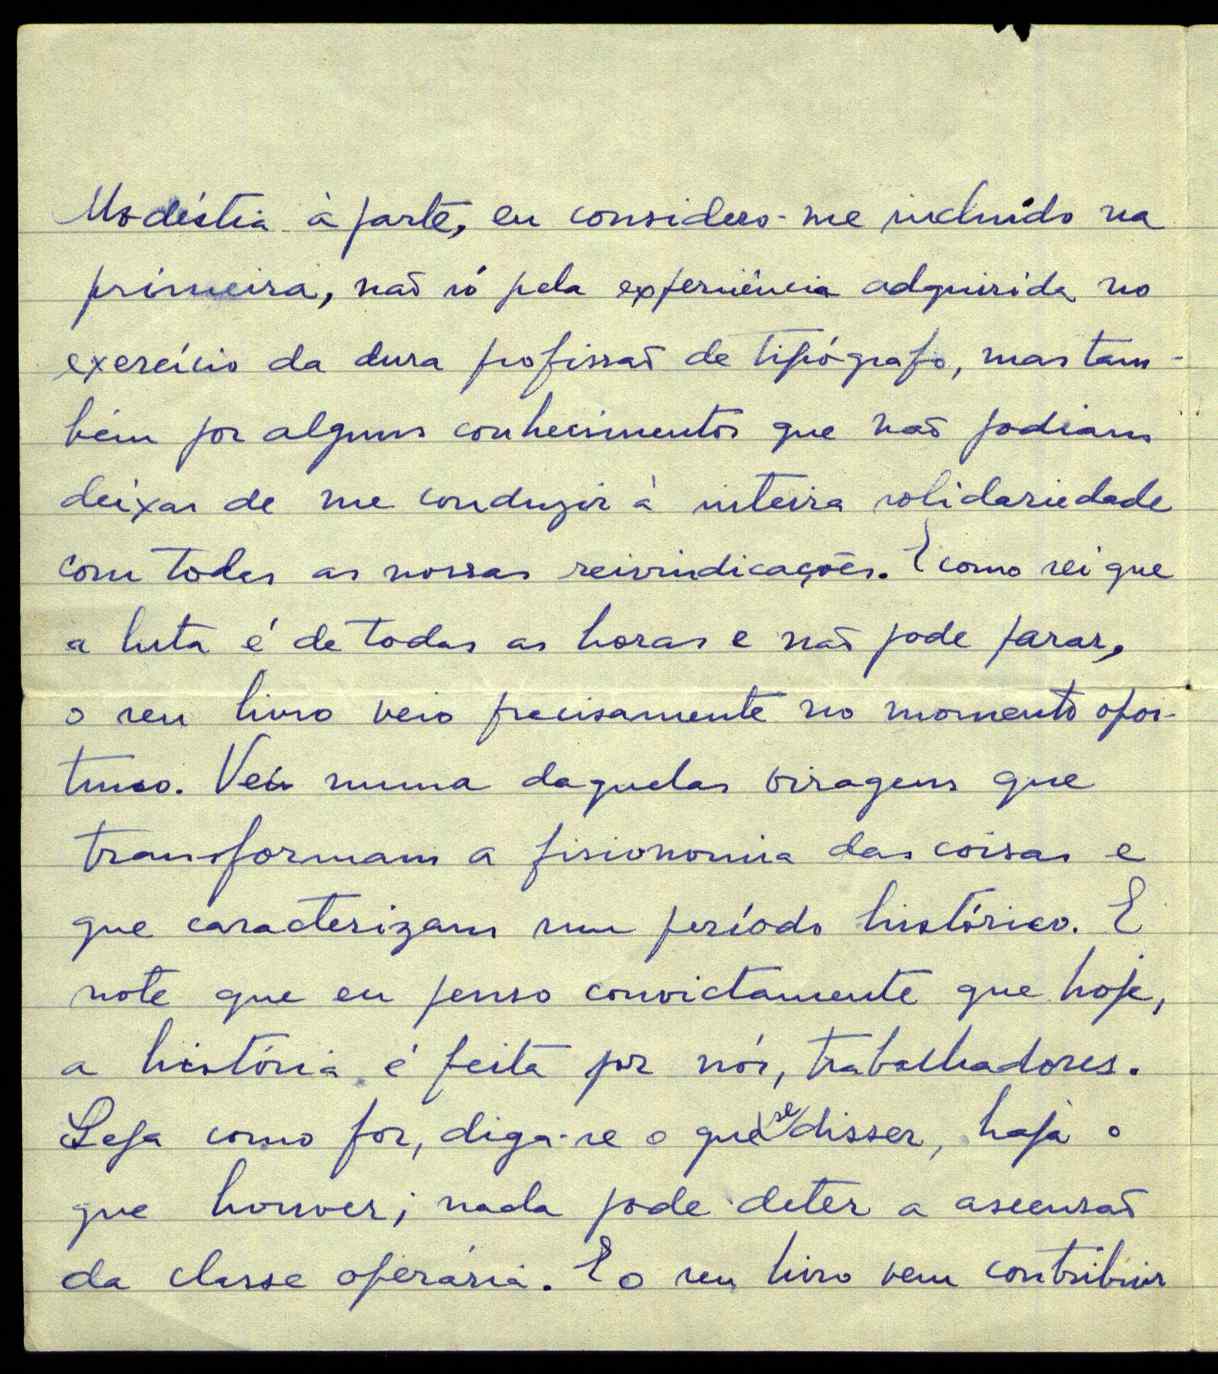 Modéstia à parte, eu considero-me incluído na
primeira, não só pela experiência adquirida no
exercício da dura profissão de tipógrafo, mas tam-
bém por alguns conhecimentos que não podiam
deixar de me conduzir à inteira solidariedade
com todas as nossas reivindicações. E como sei que
a luta é de todas as horas e não pode parar,
o seu livro veio precisamente no momento opor-
tuno. Veio numa daquelas viragens que
transformam a fisionomia das coisas e
que caracterizam um período histórico. E
note que eu penso convictamente que hoje,
a história é feita por nós, trabalhadores.
Seja como for, diga-se o que se disser, haja o
que houver; nada pode deter a ascensão
da classe operária. E o seu livro vem contribuir